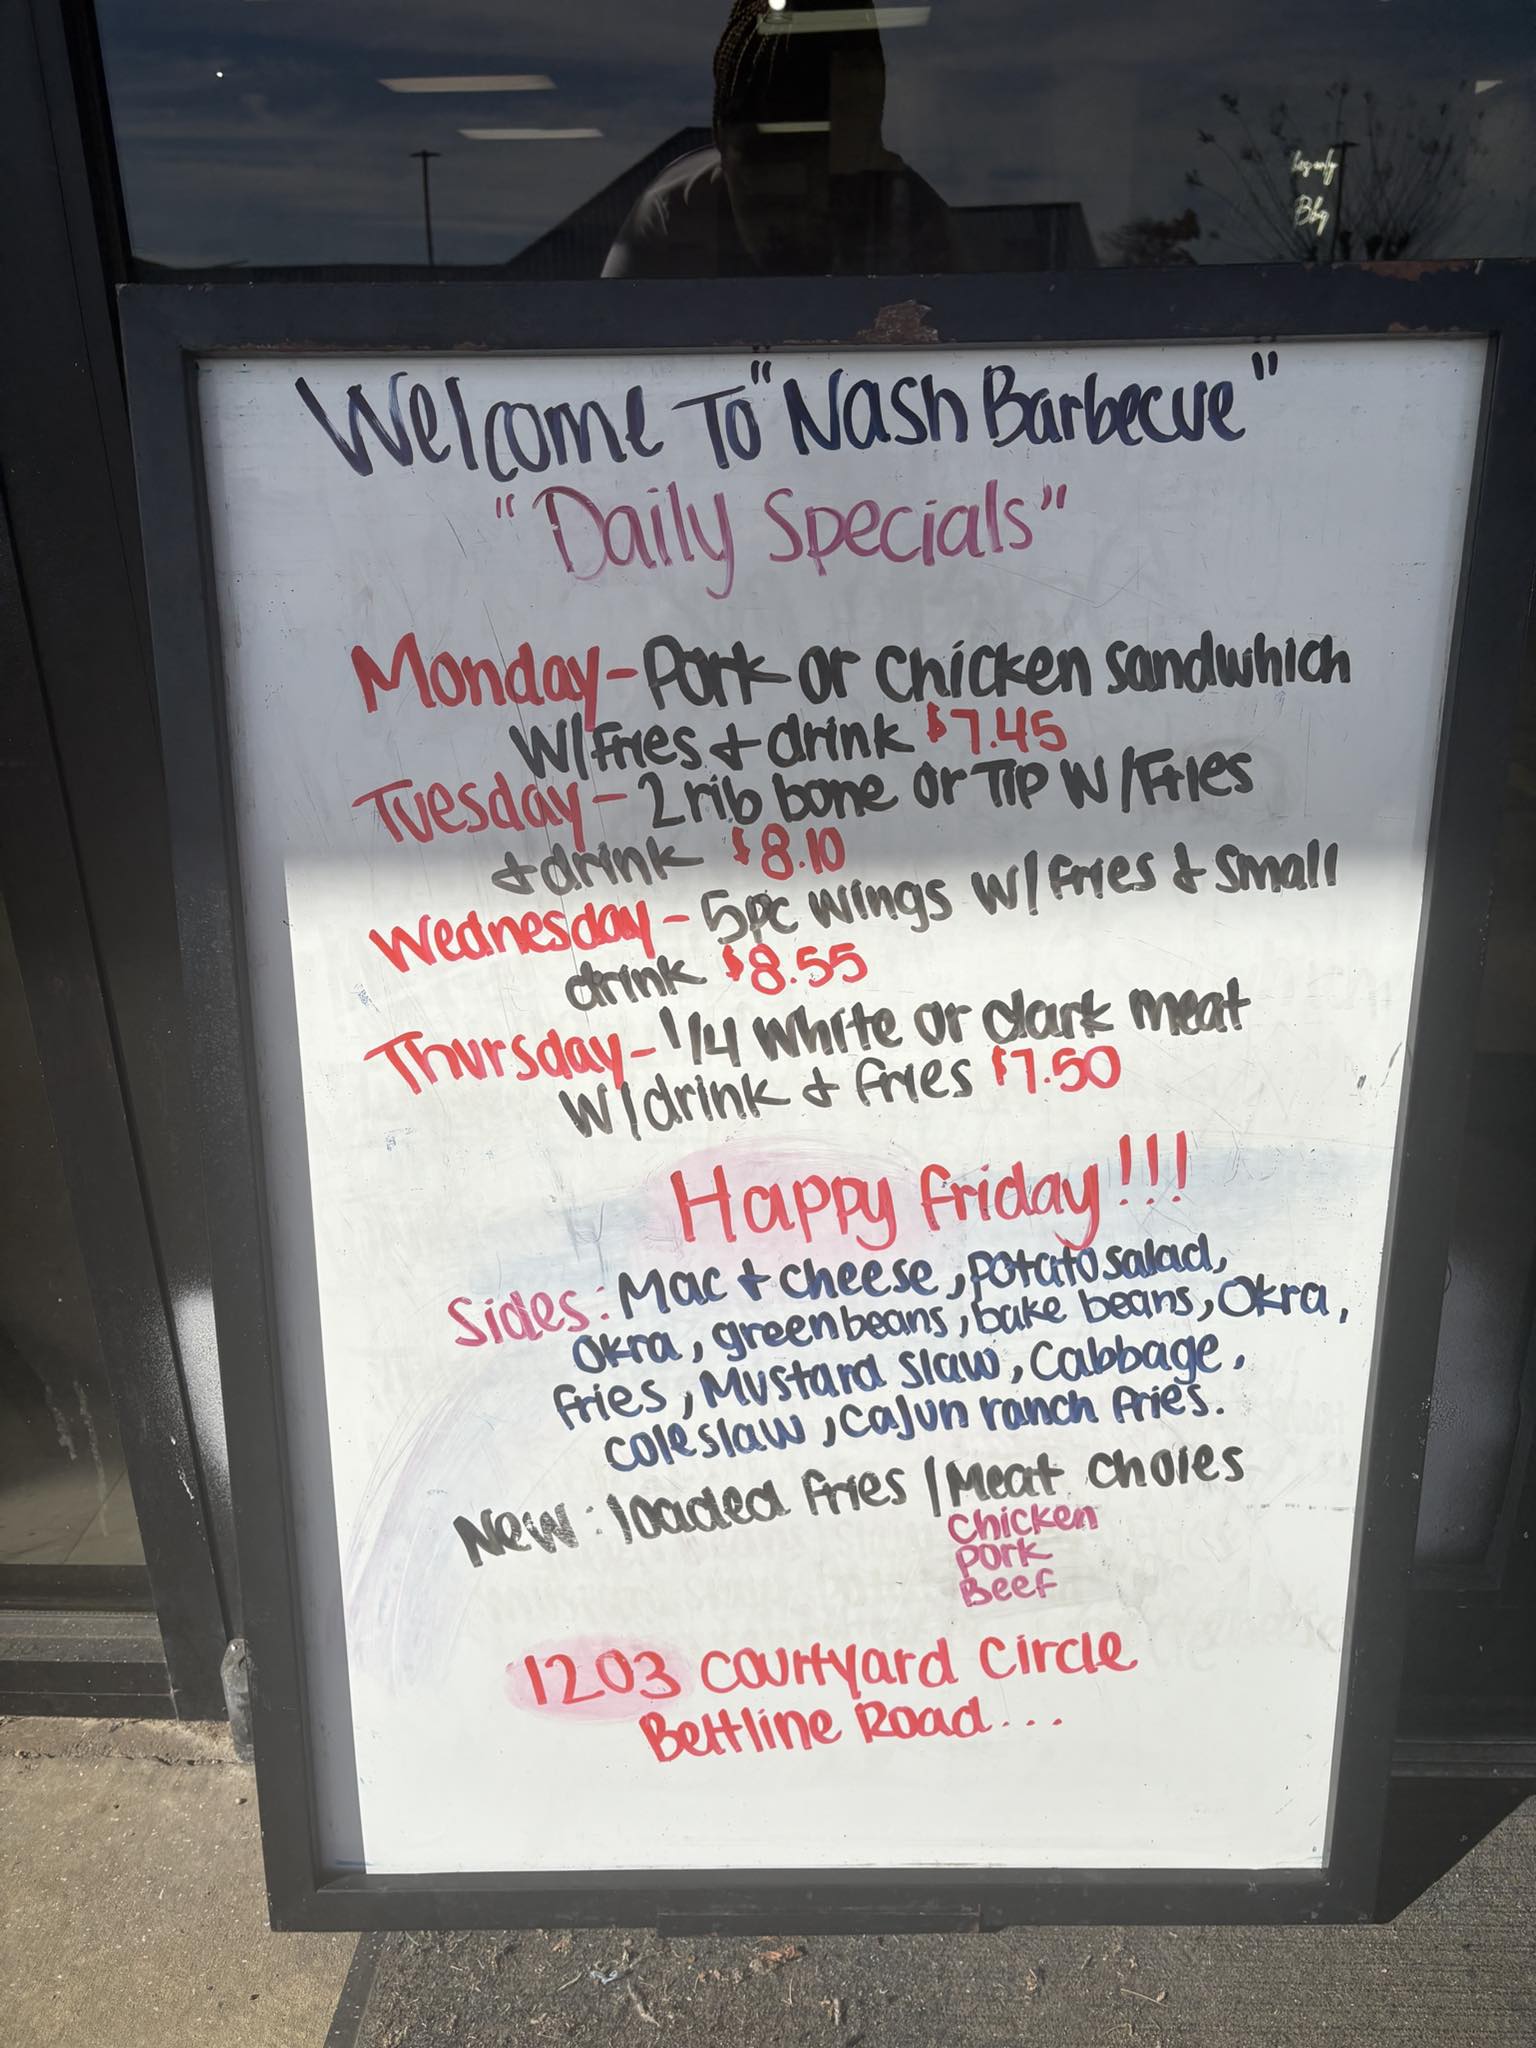 Bbq
Welcome To "Nash Barbecue"
"Daily Specials"
Monday - Pork or chicken sandwhich
W/fries + drink $7.45
Tuesday - 2 rib bone or Tip W/Fries
+ drink $8.10
Wednesday - 5pc wings W/fries + small
drink $8.55
Thursday - 1/4 White or dark meat
W/drink + fries $7.50
Happy friday!!!
Sides: Mac + cheese, potato salad,
Okra, green beans, bake beans, Okra,
fries, Mustard slaw, Cabbage,
coleslaw, Cajun ranch fries.
New: loaded fries / Meat choies
Chicken
Pork
Beef
1203 Courtyard Circle
Beltline Road...